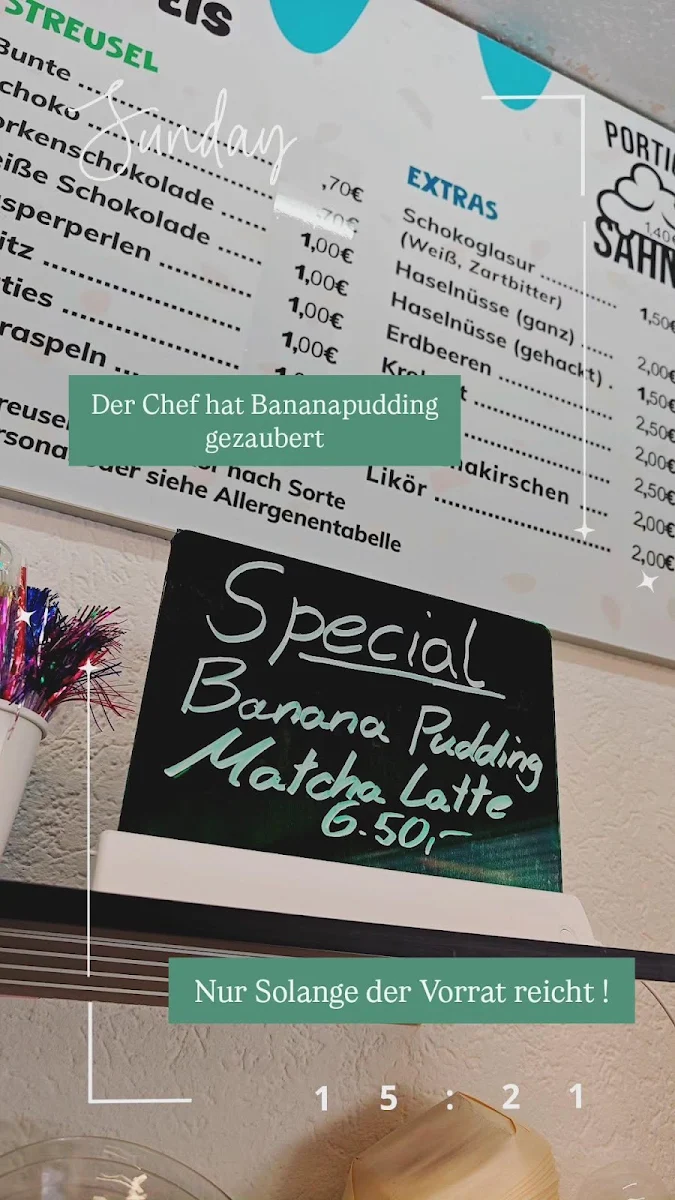 EIS
STREUSEL
Bunte
,70€
,70€
1,00€
1,00€
1,00€
1,00€
Weiße Schokolade
Sunday
EXTRAS
Schokoglasur 1,50€
(Weiß, Zartbitter)
Haselnüsse (ganz) 2,00€
Haselnüsse (gehackt) 1,50€
Erdbeeren 2,50€
2,00€
2,50€
2,00€
Likör 2,00€
1,40€
SAHN
Der Chef hat Bananapudding
gezaubert
nach Sorte
oder siehe Allergenentabelle
Special
Banana Pudding
Matcha Latte
6.50,-
Nur Solange der Vorrat reicht !
15:21